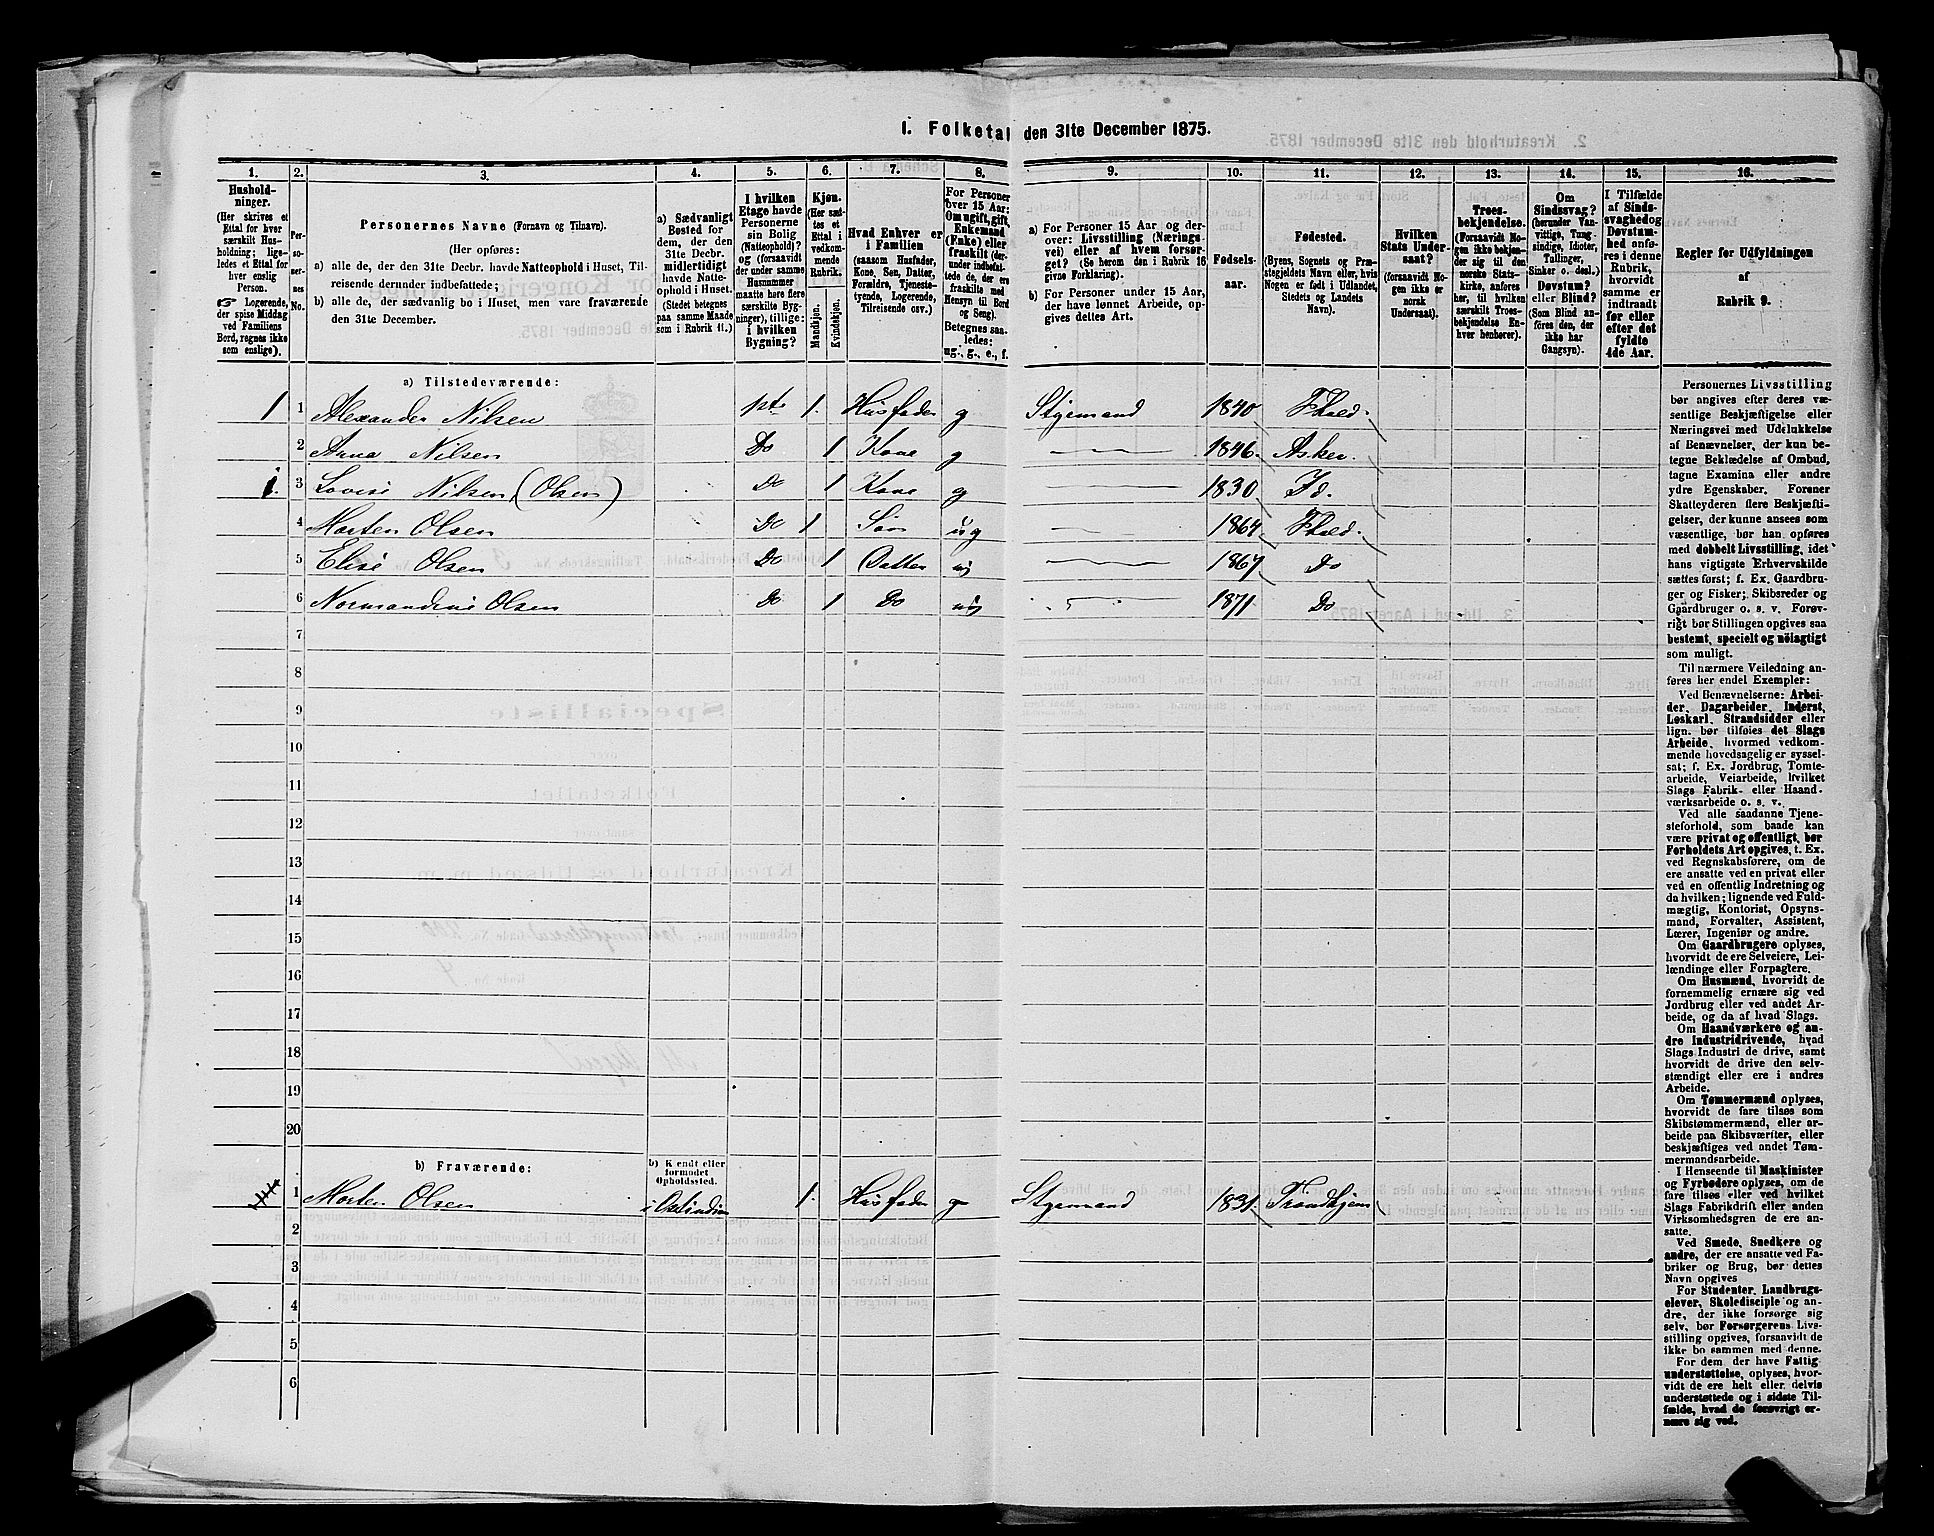 1. Folketal den 31te December 1875.
1. 2. 3. 4. 5. 6. 7. 8. 9. 10. 11. 12. 13. 14. 15. 16.
Hushold-
ninger.
(Her skrives et
Ettal for hver
særskilt Hus-
holdning; lige-
ledes et Ettal for
hver enslig
Person.
☞ Logerende,
der spise Middag
ved Familiens
Bord, regnes ikke
som enslige).
Per-
so-
ner-
nes
No.
Personernes Navne (Fornavn og Tilnavn).
(Her opføres:
a) alle de, der den 31te Decbr. havde Natteophold i Huset, Til-
reisende derunder indbefattede;
b) alle de, der sædvanlig bo i Huset, men vare fraværende
den 31te December.
a) Sædvanligt
Bosted for
dem, der den
31te Decbr.
midlertidigt
havde Natte-
ophold i Huset.
(Stedet betegnes
paa samme Maade
som i Rubrik 11.)
I hvilken
Etage havde
Personerne
sin Bolig
(Natteophold)?
og (forsaavidt
der under samme
Husnummer
maatte høre flere
særskilte Byg-
ninger), tillige:
i hvilken
Bygning?
Kjøn.
(Her sæt-
tes et
Ettal i
vedkom-
mende
Rubrik.
Mandkjøn.
Kvindekjøn.
Hvad Enhver er
i Familien
(saasom Husfader,
Kone, Søn, Datter,
Forældre, Tjeneste-
tyende, Logerende,
Tilreisende osv.).
For Personer
over 15 Aar:
Om ugift, gift,
Enkemand
(Enke) eller
fraskilt (der-
under indbefat-
tede de, der ere
fraskilte med
Hensyn til Bord
og Seng).
Betegnes saa-
ledes:
ug., g., e., f.
a) For Personer 15 Aar og der-
over: Livsstilling (Nærings-
vei) eller af hvem forsør-
get? (Se herom den i Rubrik 16
givne Forklaring).
b) For Personer under 15 Aar,
der have lønnet Arbeide, op-
gives dettes Art.
Fødsels-
aar.
Fødested.
(Byens, Sognets og Præ-
stegjeldets Navn eller, hvis
Nogen er født i Udlandet,
Stedets og Landets
Navn).
Hvilken
Stats Under-
saat?
(forsaavidt No-
gen ikke er
norsk
Undersaat).
Troes-
bekjendelse.
(Forsaavidt No-
gen ikke bekjen-
der sig til den
norske Stats-
kirke, anføres
her, til hvilken
særskilt Troes-
bekjendelse En-
hver henhører).
Om
Sindssvag?
(herunder Van-
vittige, Tung-
sindige, Idioter,
Tullinger,
Sinker o. desl.)
Døvstum?
eller Blind?
(Som Blind an-
føres den, der
ikke har
Gangsyn).
I Tilfælde
af Sinds-
svaghed og
Døvstum-
hed anfø-
res i denne
Rubrik,
hvorvidt
samme er
indtraadt
før eller
efter det
fyldte
4de Aar.
Regler for Udfyldningen
af
Rubrik 9.
a) Tilstedeværende:
1 1 Alexander Nilsen 1ste 1. Husfader g Styrmand 1840 Fhald.
2 Anna Nilsen Do 1 Kone g 1846. Asker.
1. 3 Lovise Nilsen (Olsen) Do 1 Kone g 1830 Id.
4 Morten Olsen Do 1 Søn ug 1864 Fhald.
5 Elise Olsen Do 1 Datter ug 1867 Do
6 Normandine Olsen Do 1 Do ug 1871 Do
7
8
9
10
11
12
13
14
15
16
17
18
19
20
b) Fraværende:
b) Kjendt eller
formodet
Opholdssted.
1 Morten Olsen i Ostindien 1. Husfader g Styrmand 1831. Trondhjem
2
3
4
5
6
Personernes Livsstilling
bør angives efter deres væ-
sentlige Beskjæftigelse eller
Næringsvei med Udelukkelse
af Benævnelser, der kun be-
tegne Beklædelse af Ombud,
tagne Examina eller andre
ydre Egenskaber. Forener
Skatteyderen flere Beskjæfti-
gelser, der kunne ansees som
væsentlige, bør han opføres
med dobbelt Livsstilling, idet
hans vigtigste Erhvervskilde
sættes først; f. Ex. Gaardbru-
ger og Fisker; Skibsreder og
Gaardbruger o. s. v. Forøv-
rigt bør Stillingen opgives saa
bestemt, specielt og nöiagtigt
som muligt.
Til nærmere Veiledning an-
føres her endel Exempler:
Ved Benævnelserne: Arbei-
der, Dagarbeider, Inderst,
Løskarl, Strandsidder eller
lign. bør tilføies det Slags
Arbeide, hvormed vedkom-
mende hovedsagelig er syssel-
sat; f. Ex. Jordbrug, Tomte-
arbeide, Veiarbeide, hvilket
Slags Fabrik- eller Haand-
værksarbeide o. s. v.
Ved alle saadanne Tjene-
steforhold, som baade kan
være privat og offentligt, bør
Forholdets Art opgives, t. Ex.
ved Regnskabsførere, om de
ere ansatte ved en privat eller
ved en offentlig Indretning og
da hvilken; lignende ved Fuld-
mægtig, Kontorist, Opsyns-
mand, Forvalter, Assistent,
Lærer, Ingeniør og andre.
Om Gaardbrugere oplyses,
hvorvidt de ere Selveiere, Lei-
lændinge eller Forpagtere.
Om Husmænd, hvorvidt de
fornemmelig ernære sig ved
Jordbrug eller ved andet Ar-
beide, og da af hvad Slags.
Om Haandværkere og an-
dre Industridrivende, hvad
Slags Industri de drive, samt
hvorvidt de drive den selv-
stændigt eller ere i andres
Arbeide.
Om Tømmermænd oplyses,
hvorvidt de fare tilsøs som
Skibstømmermænd, eller ar-
beide paa Skibsværfter, eller
beskjæftiges ved andet Tøm-
mermandsarbeide.
I Henseende til Maskinister
og Fyrbødere oplyses, om de
fare tilsøs eller ved hvilket
Slags Fabrikdrift eller anden
Virksomhedsgren de ere an-
satte.
Ved Smede, Snedkere og
andre, der ere ansatte ved Fa-
briker og Brug, bør dettes
Navn opgives
For Studenter, Landbrugs-
elever, Skoledisciple og an-
dre, der ikke forsørge sig
selv, bør Forsørgerens Livs-
stilling opgives, forsaavidt de
ikke bo sammen med denne.
For dem, der have Fattig-
understøttelse, oplyses, hvor-
vidt de ere helt eller delvis
understøttede og i sidste Til-
fælde, hvad de forøvrigt er-
nære sig ved.